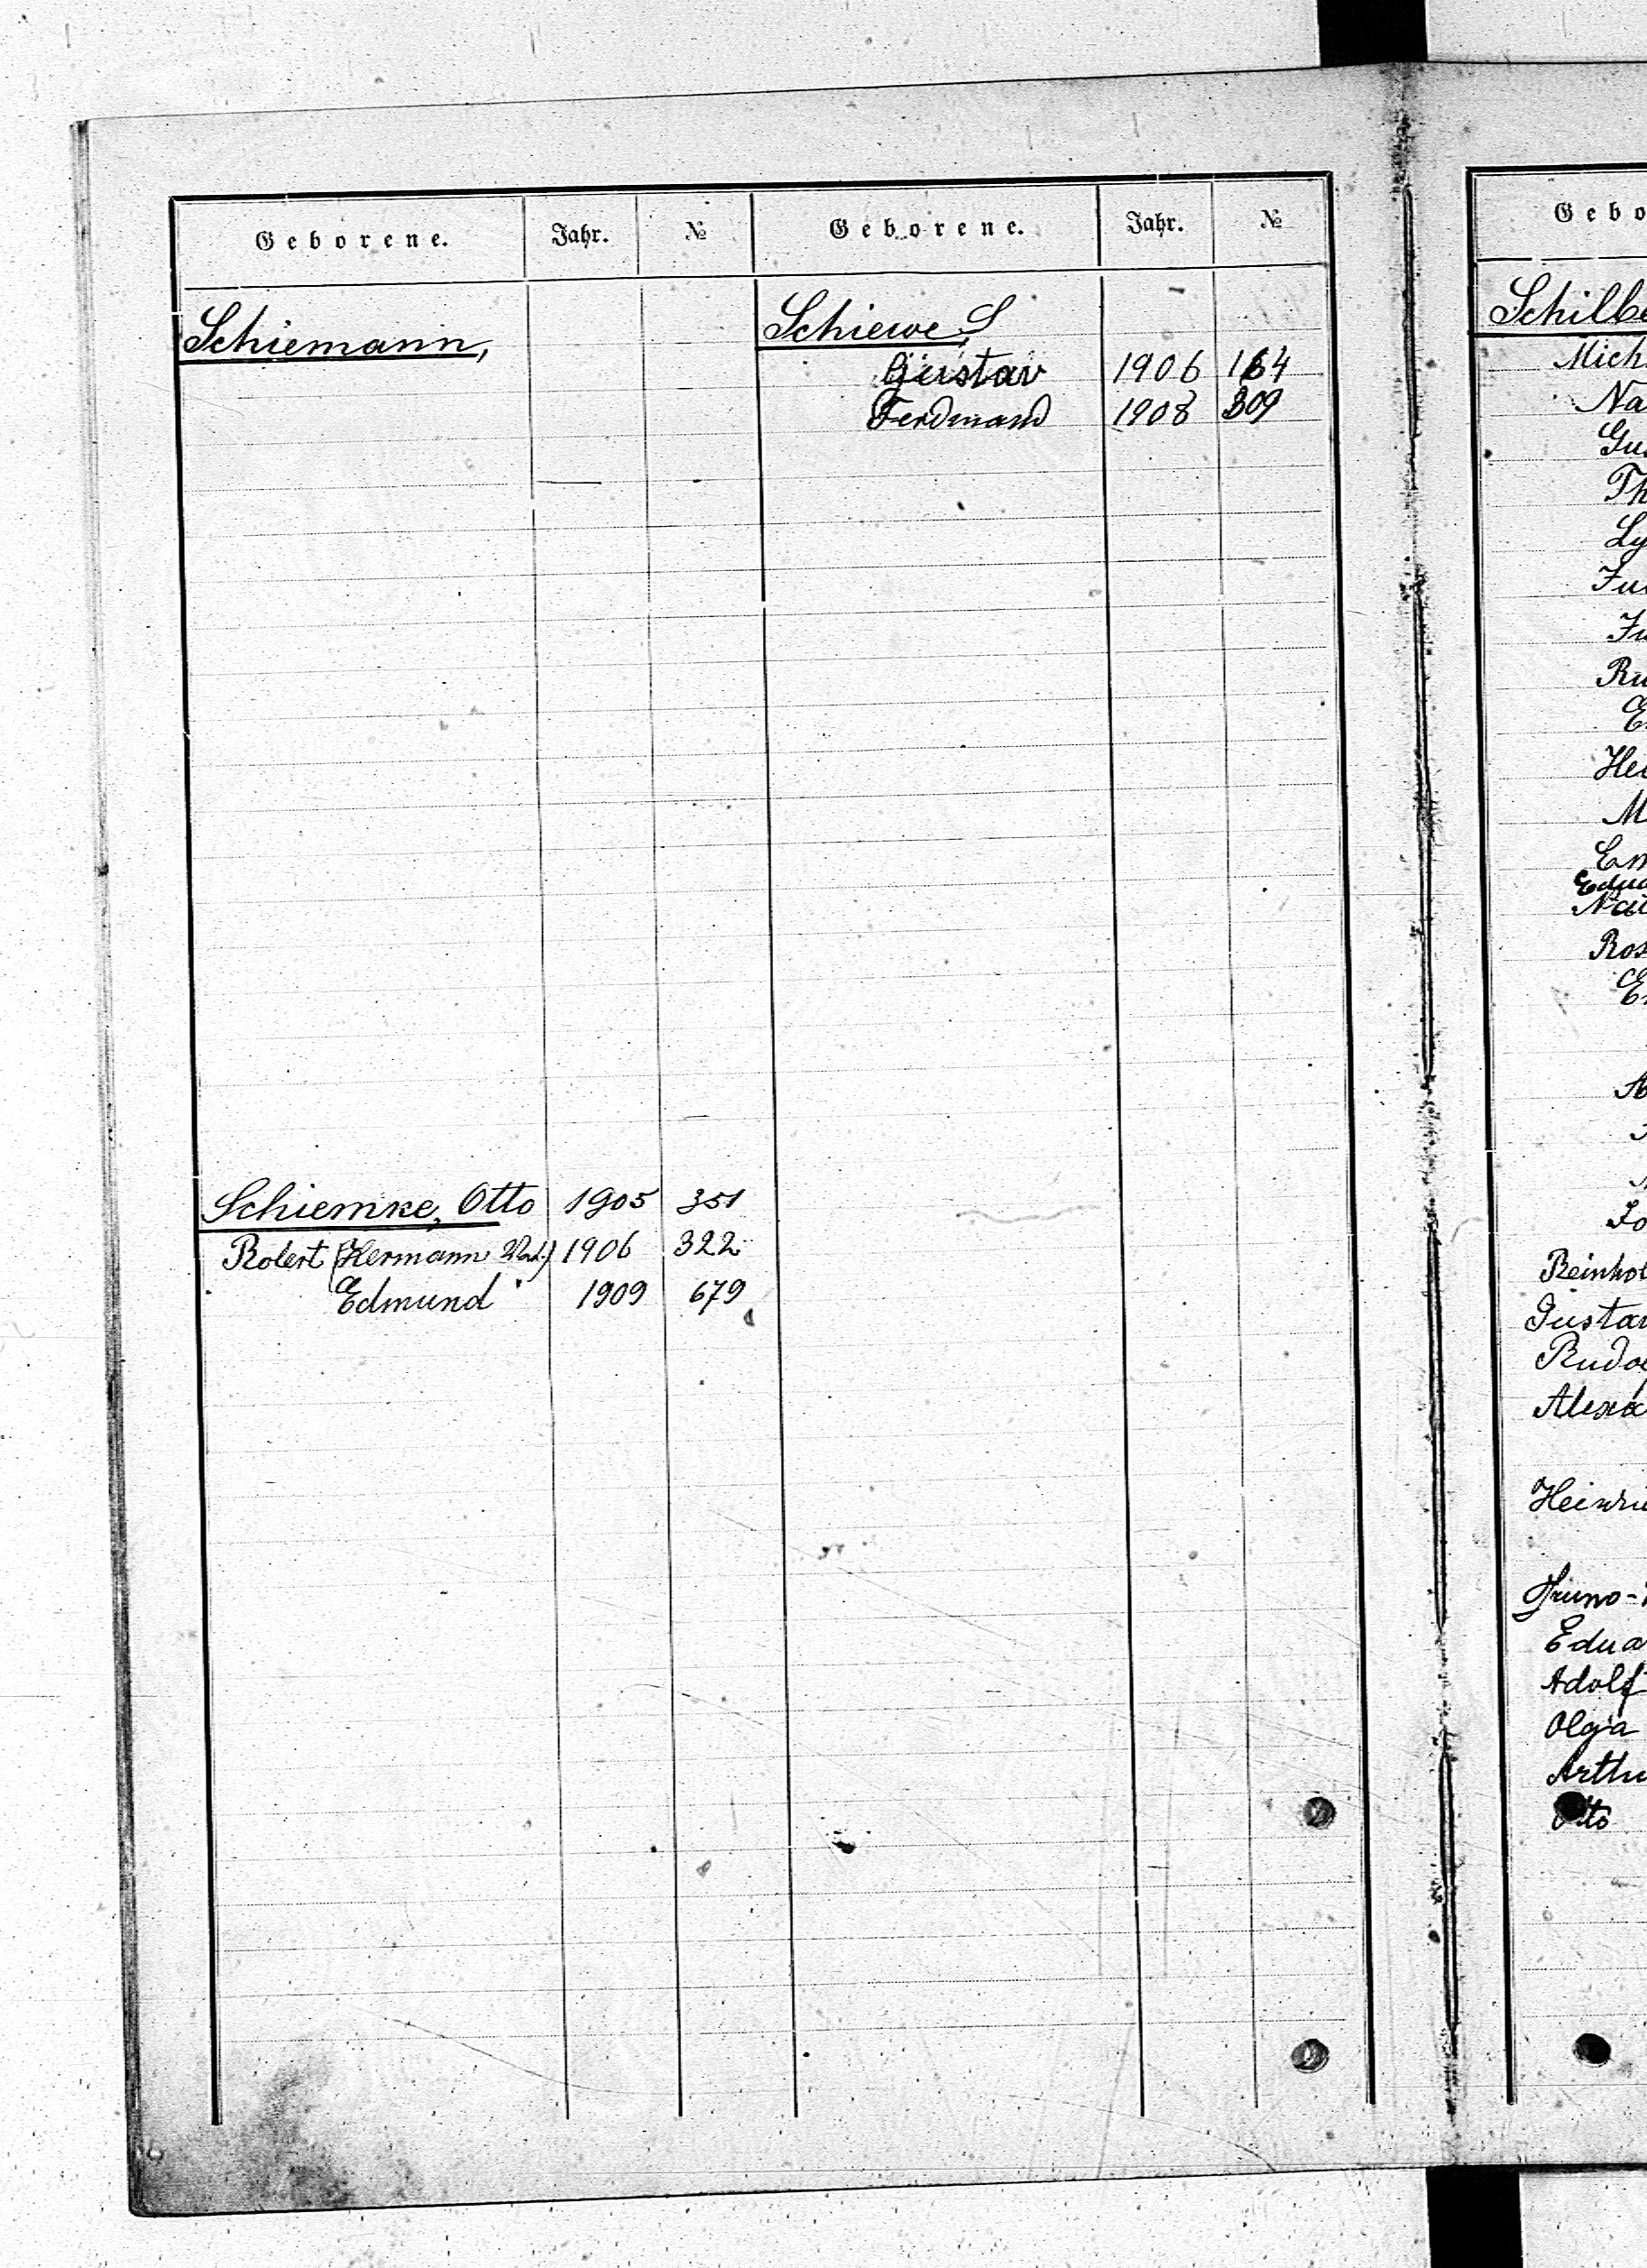 Geborene. Jahr. № Geborene. Jahr. №
Schiemann,
Schiewe, S
Gustav 1906 164
Ferdinand 1908 309
Schiemke, Otto 1905 351
Robert (Hermann 1906 322
Edmund 1909 679
Gebo
Schilbe
Mich
Na
Gus
Th
Ly
Ju
Ru
Hei
M
Em
Edua
Nat
Ros
Jo
Reinhol
Gustav
Rudo
Alexa
Heinri
Bruno-
Edua
Adolf
Olga
Arthu
Otto